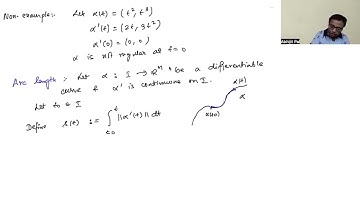 Non-example:- Let α(t) = (t², t³)
α'(t) = (2t, 3t²)
α'(0) = (0, 0)
α is not regular at t=0
Arc length:- Let α : I → ℝⁿ be a differentiable
curve & α' is continuous on I.
Let t₀ ∈ I
Define s(t) := ∫ₜ₀ᵗ ||α'(t)|| dt
α(t)
α
α(t₀)